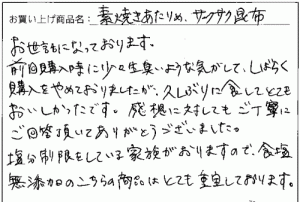 お買い上げ商品名: 素焼きあたりめ、サクサク昆布
お世話になっております。
前回購入時に少々生臭いような気がして、しばらく
購入をやめておりましたが、久しぶりに食してとても
おいしかったです。感想に対してもご丁寧に
ご回答頂いてありがとうございました。
塩分制限をしている家族がおりますので、食塩
無添加のこちらの商品はとても重宝しております。